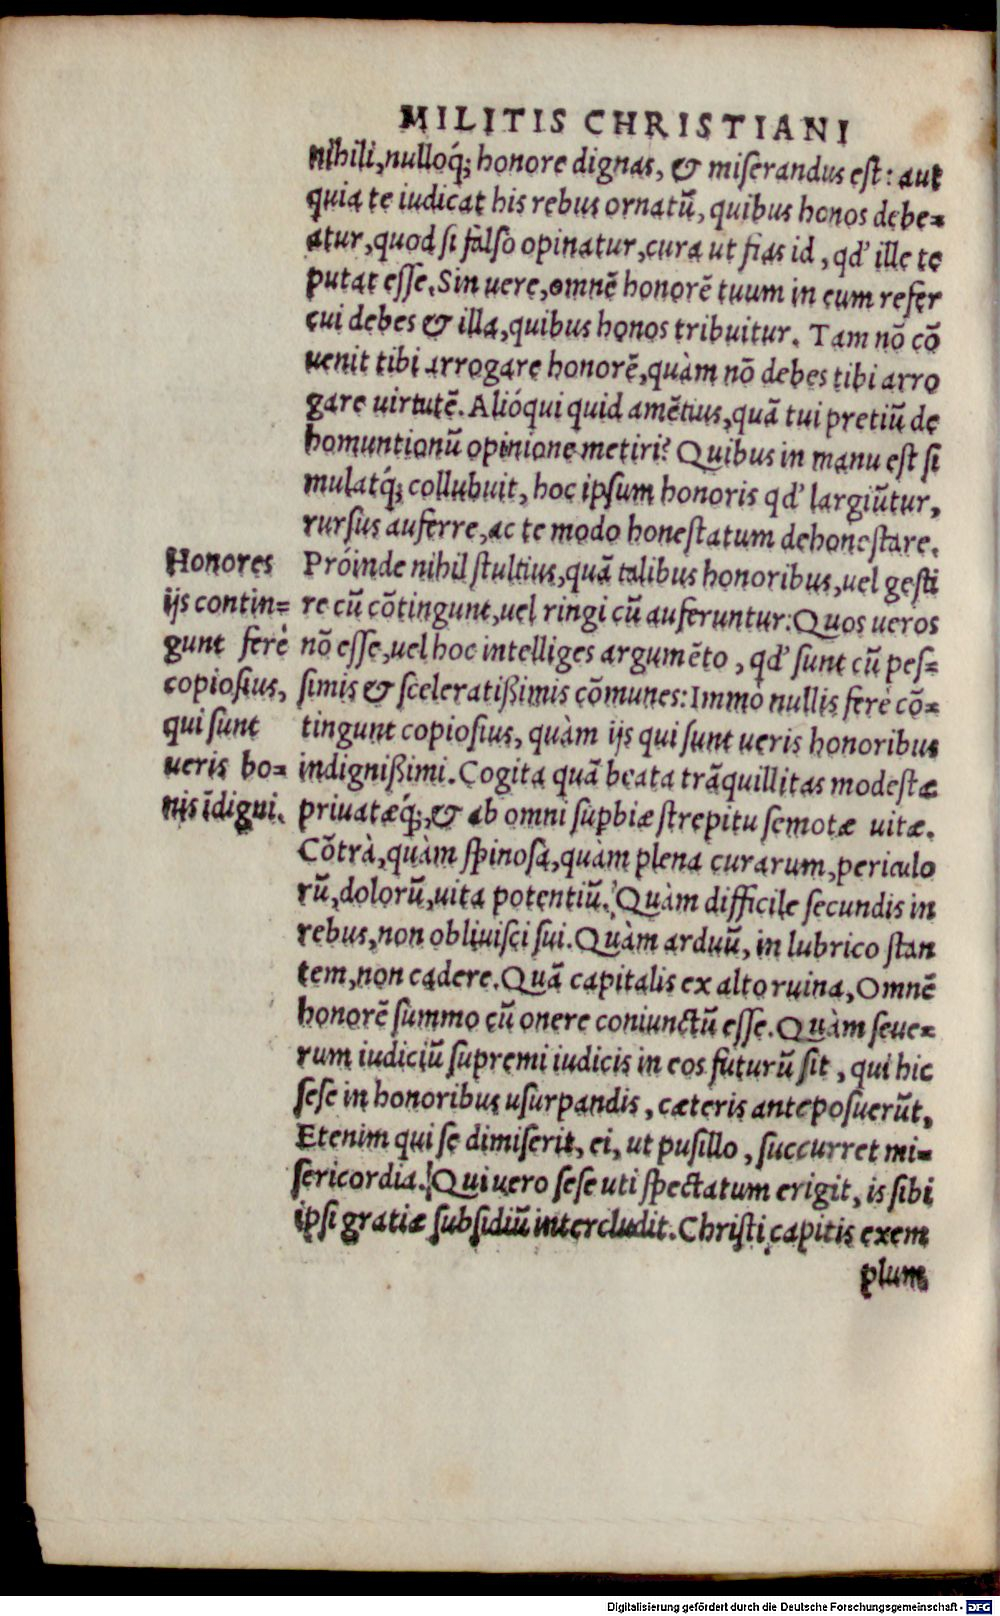 MILITIS CHRISTIANI
nihili, nulloq́; honore dignas, & miserandus est: aut
quia te iudicat his rebus ornatū, quibus honos debe=
atur, quod si falso opinatur, cura ut fias id, qd' ille te
putat esse. Sin uere, omnē honorē tuum in eum refer
cui debes & illa, quibus honos tribuitur. Tam nō cō
uenit tibi arrogare honorē, quàm nō debes tibi arro
gare uirtutē. Alióqui quid amētius, quā tui pretiū de
homuntionū opinione metiri? Quibus in manu est si
mulatq́; collubuit, hoc ipsum honoris qd' largiūtur,
rursus auferre, ac te modo honestatum dehonestare.
Próinde nihil stultius, quā talibus honoribus, uel gesti
re cū cōtingunt, uel ringi cū auferuntur: Quos ueros
nō esse, uel hoc intelliges argumēto, qd' sunt cū pes=
simis & sceleratißimis cōmunes: Immo nullis ferè cō=
tingunt copiosius, quàm ijs qui sunt ueris honoribus
indignißimi. Cogita quā beata trāquillitas modestæ
priuatæq́;, & ab omni supbiæ strepitu semotæ uitæ.
Cōtrà, quàm spinosa, quàm plena curarum, periculo
rū, dolorū, uita potentiū. Quàm difficile secundis in
rebus, non obliuisci sui. Quàm arduū, in lubrico stan
tem, non cadere. Quā capitalis ex alto ruina, Omnē
honorē summo cū onere coniunctū esse. Quàm seue=
rum iudiciū supremi iudicis in eos futurū sit, qui hic
sese in honoribus usurpandis, cæteris anteposuerūt,
Etenim qui se dimiserit, ei, ut pusillo, succurret mi=
sericordia. Qui uero sese uti spectatum erigit, is sibi
ipsi gratiæ subsidiū intercludit. Christi capitis exem
plum
Honores
ijs contin=
gunt ferè
copiosius,
qui sunt
ueris ho=
nis īdigni.
Digitalisierung gefördert durch die Deutsche Forschungsgemeinschaft - DFG